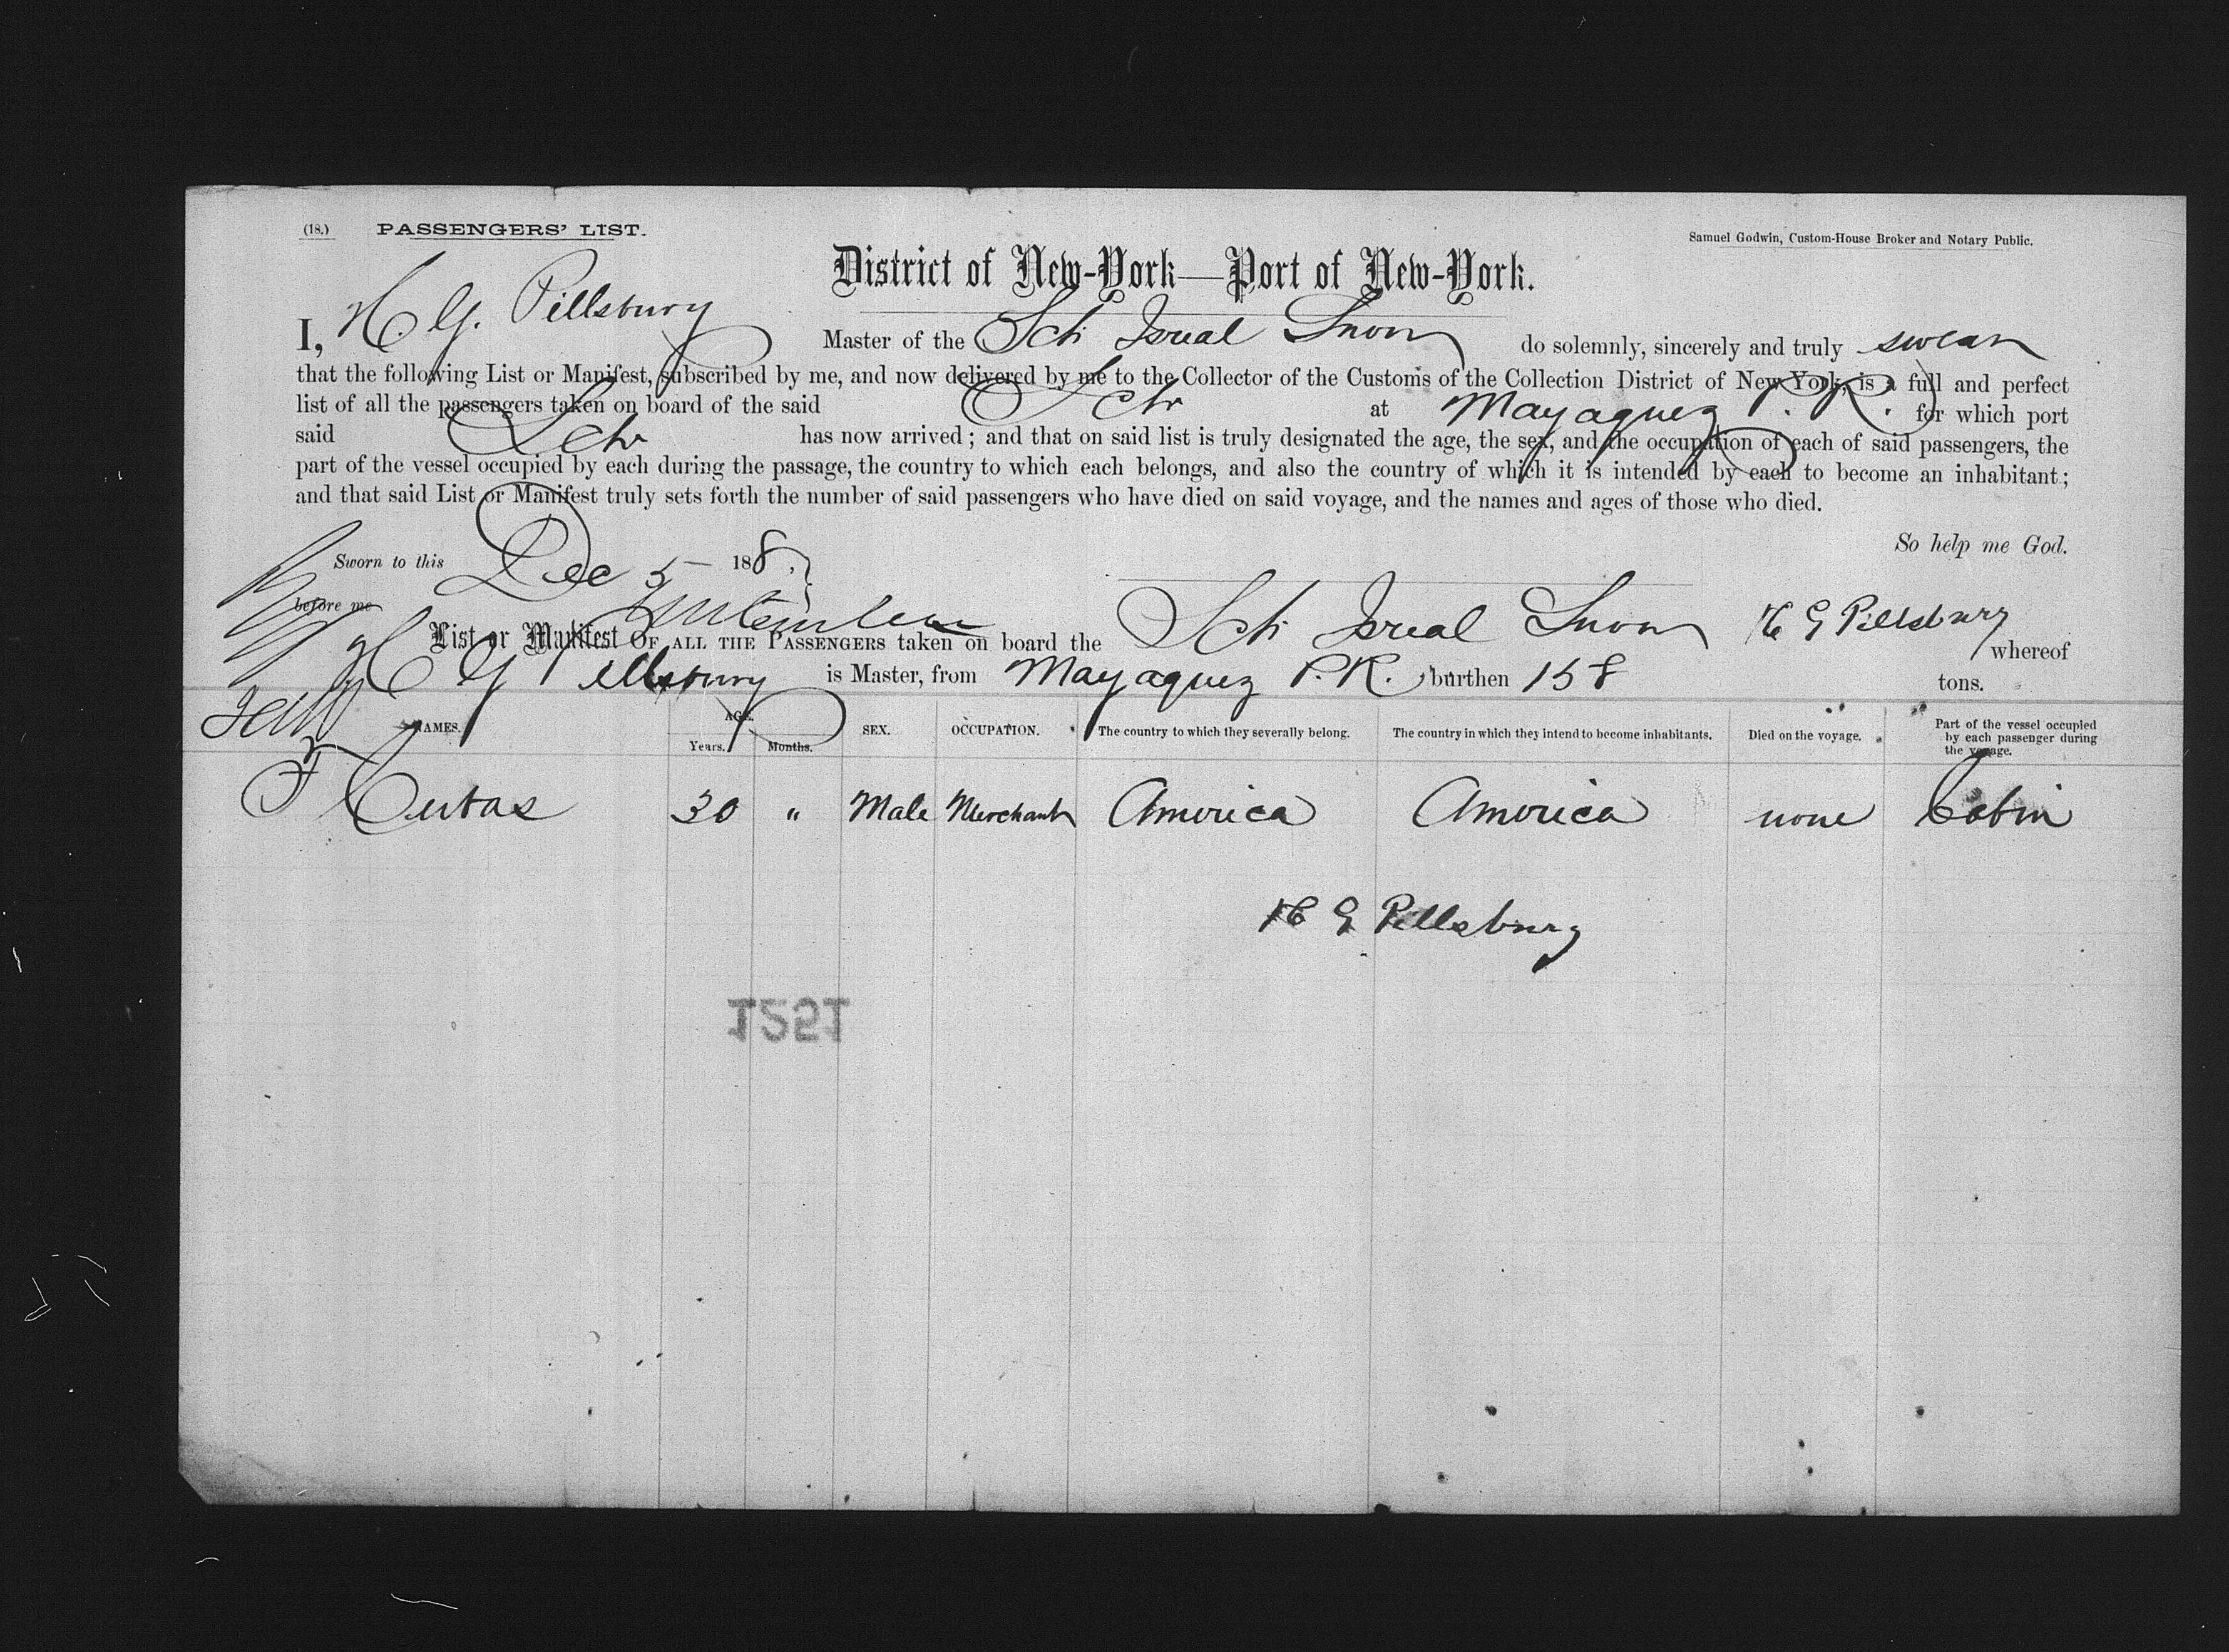 (18.) PASSENGERS' LIST.
Samuel Godwin, Custom-House Broker and Notary Public.
District of New-York—Port of New-York.
I, H. G. Pillsbury Master of the Sch Isreal Snow do solemnly, sincerely and truly swear
that the following List or Manifest, subscribed by me, and now delivered by me to the Collector of the Customs of the Collection District of New York, is a full and perfect
list of all the passengers taken on board of the said Schr at Mayaguez P. R. for which port
said Schr has now arrived; and that on said list is truly designated the age, the sex, and the occupation of each of said passengers, the
part of the vessel occupied by each during the passage, the country to which each belongs, and also the country of which it is intended by each to become an inhabitant;
and that said List or Manifest truly sets forth the number of said passengers who have died on said voyage, and the names and ages of those who died.
So help me God.
Sworn to this Dec 5 188
before me
H G Pillsbury
List or Manifest OF ALL THE PASSENGERS taken on board the Sch Isreal Snow whereof
H G Pillsbury is Master, from Mayaguez P. R. burthen 158 tons.
NAMES. AGE. Years. Months. SEX. OCCUPATION. The country to which they severally belong. The country in which they intend to become inhabitants. Died on the voyage. Part of the vessel occupied by each passenger during the voyage.
F Cubas 30 " Male Merchant America America none Cabin
H G Pillsbury
1251